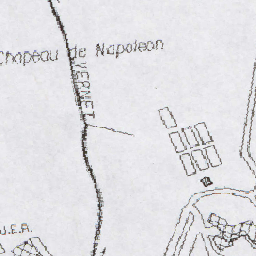 Chapeau de Napoleon
VERNET
J.E.A.